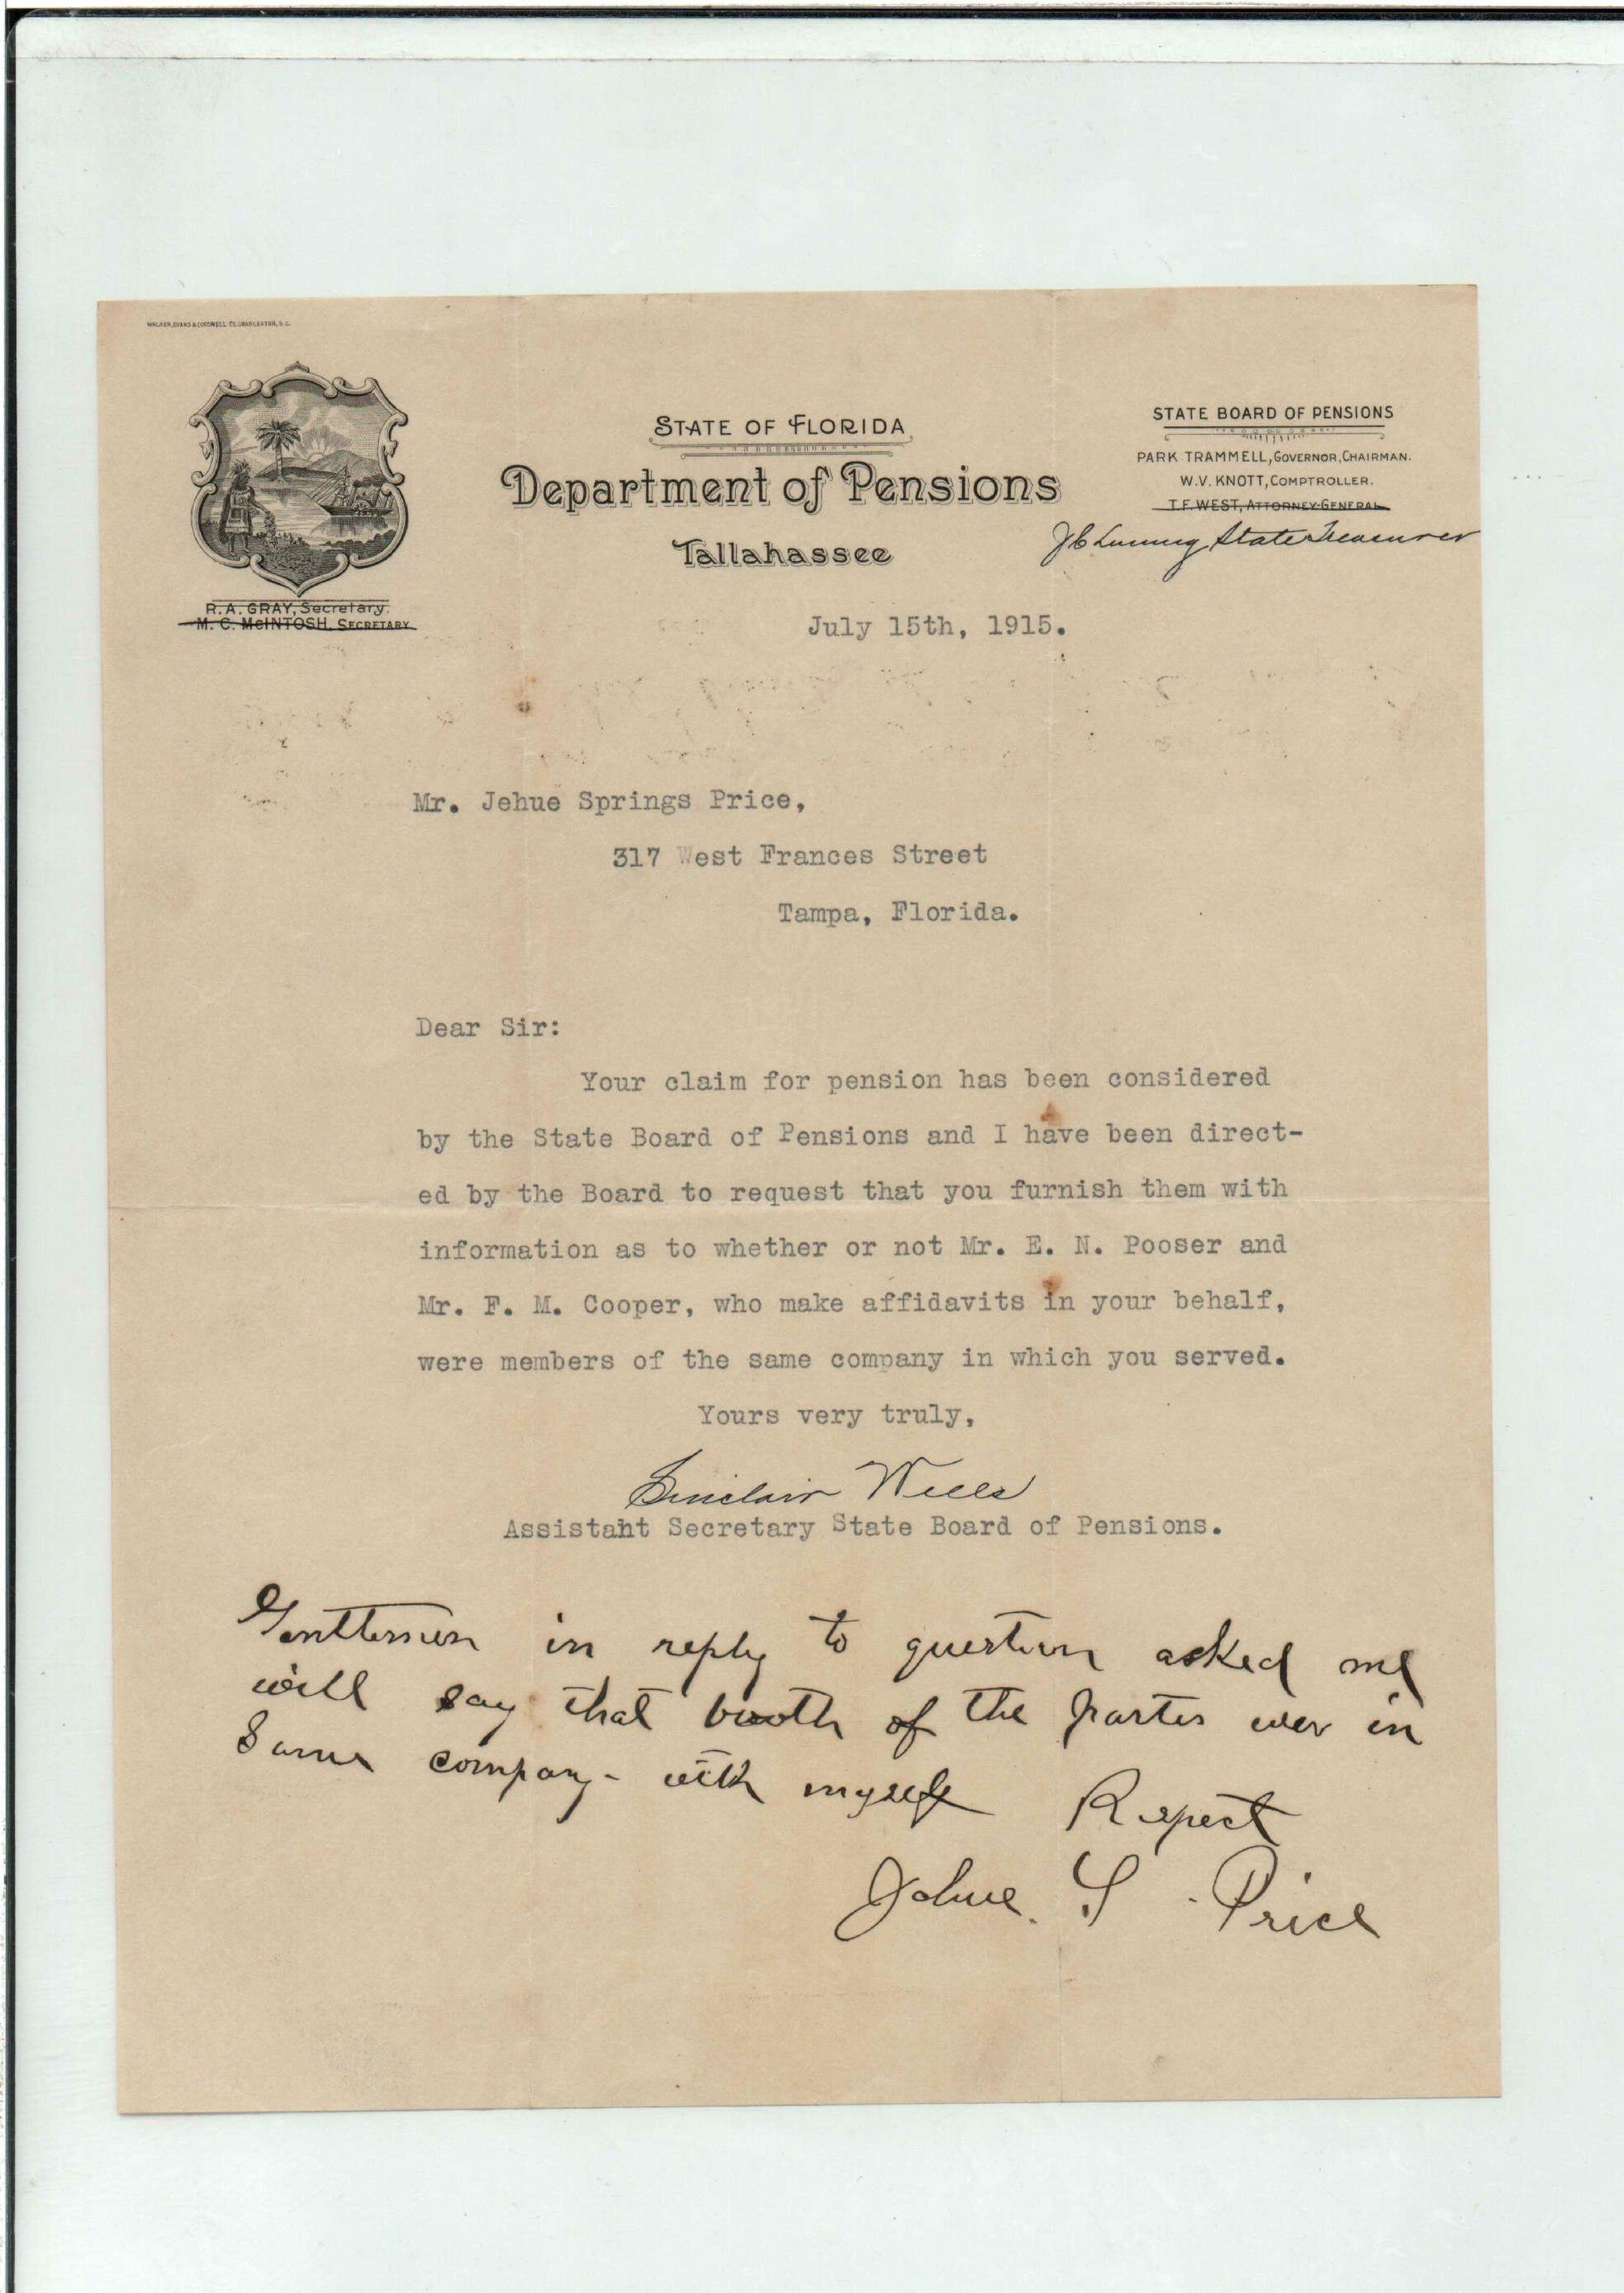 WALKER, EVANS & COGSWELL CO. CHARLESTON, S.C.
STATE OF FLORIDA
Department of Pensions
Tallahassee
STATE BOARD OF PENSIONS
PARK TRAMMELL, GOVERNOR, CHAIRMAN.
W.V. KNOTT, COMPTROLLER.
T.F. WEST, ATTORNEY-GENERAL
J C Luning State Treasurer
R.A. GRAY, Secretary.
M. C. McINTOSH, SECRETARY
July 15th, 1915.
Mr. Jehue Springs Price,
317 West Frances Street
Tampa, Florida.
Dear Sir:
Your claim for pension has been considered
by the State Board of Pensions and I have been direct-
ed by the Board to request that you furnish them with
information as to whether or not Mr. E. N. Pooser and
Mr. F. M. Cooper, who make affidavits in your behalf,
were members of the same company in which you served.
Yours very truly,
Sinclair Wells
Assistant Secretary State Board of Pensions.
Gentlemen in reply to question asked me
will say that booth of the parties wer in
Same company - with myself Respect
Jehue. S. Price